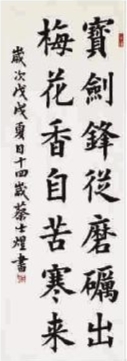 寶劍鋒從磨礪出
梅花香自苦寒来
歲次戊戌夏日十四歲蔡士煌書